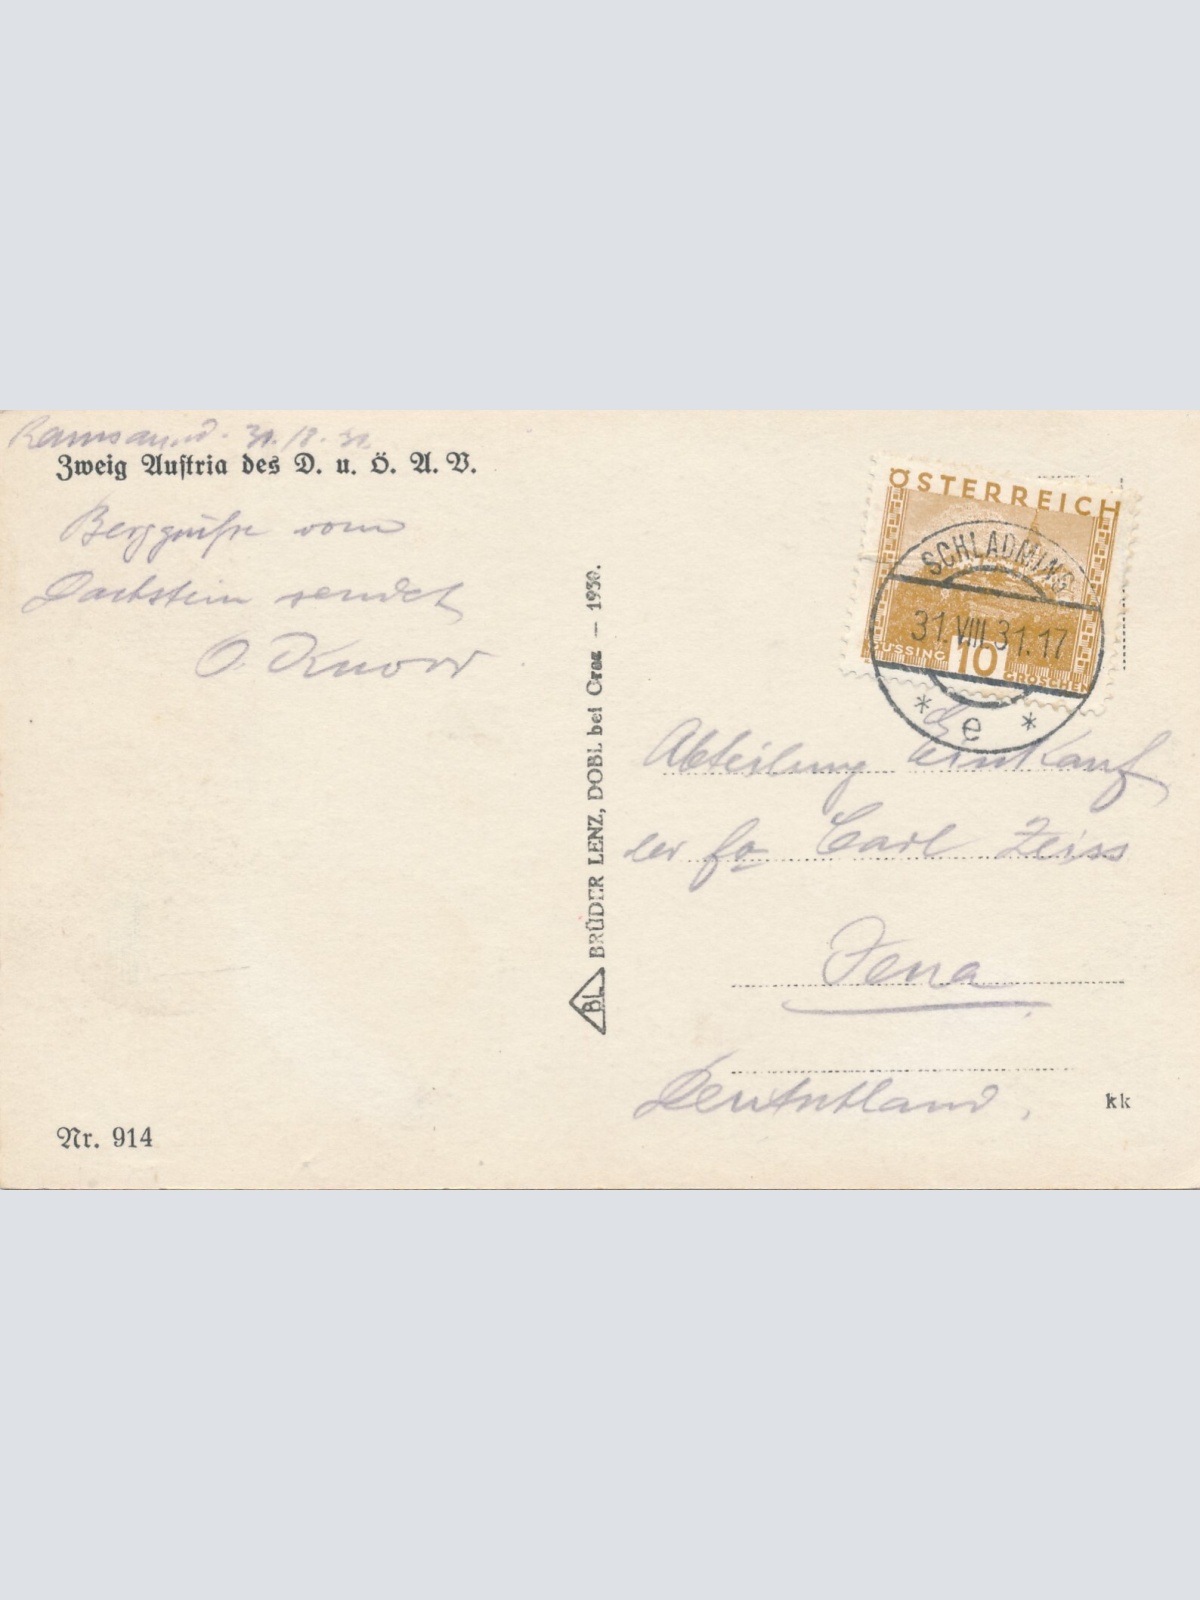 Ramsau. 31./8.31.
Zweig Austria des D. u. Ö. A. V.
Berggrüße vom
Dachstein sendet
O. Knorr
Nr. 914
BL BRÜDER LENZ, DOBL bei Graz — 1930.
ÖSTERREICH
GÜSSING 10 GROSCHEN
SCHLADMING
31.VIII.31.17
* e *
Abteilung Einkauf
der Fa Carl Zeiss
Jena
Deutschland.
kk